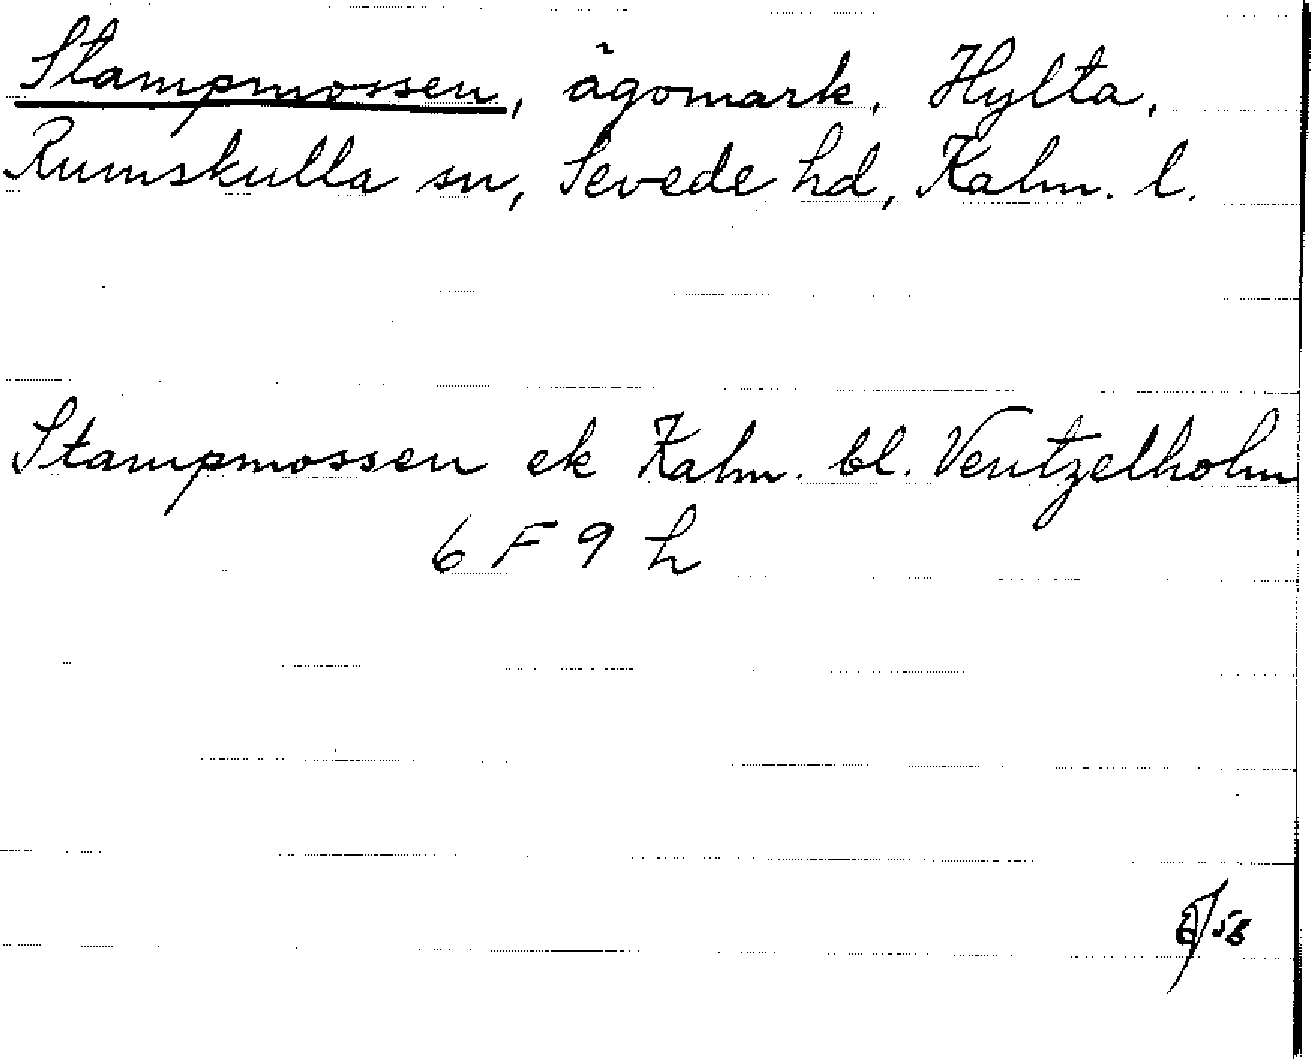 Stampmossen, ägomark, Hylta,
Rumskulla sn, Sevede hd, Kalm. l.
Stampmossen ek Kalm. bl. Ventzelholm
6 F 9 h